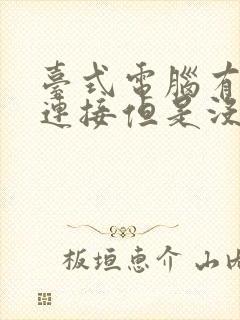 臺式電腦有
連接但是沒
板垣惠介 山内